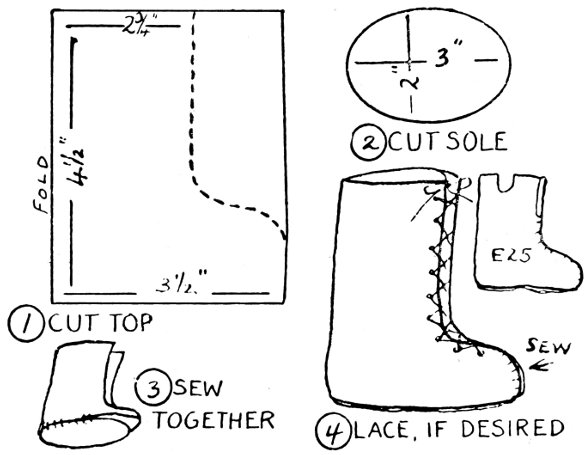 2¾"
FOLD
4½"
3½"
① CUT TOP
3"
2"
② CUT SOLE
③ SEW
TOGETHER
E25
SEW
④ LACE, IF DESIRED